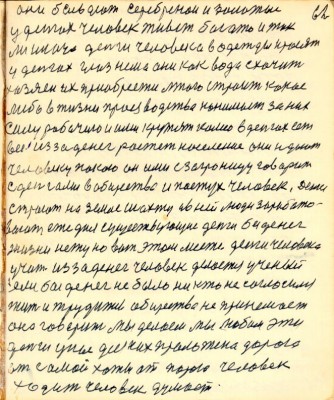 62
они бывают серебреной и золотые
у денгах человек живет богато и так
денги человека в одежды кроят
у денгах глаз нема они как вода
хозяен их приобрести много строит какое
либо в жизни производства нанимает за них
силу рабочию или крутят колесо в денгах сет
все из за денег растет население они и дают
человеку покою он или с заграницу говорит
с денгами в обиществе и пастух человек, денги
строят на земле шахту и в ней люди зарабато
вают, еже дня существующие денги без денег
жизни нету но вот этом месте денги человека
учит из за денег человек делается ученый
если бы денег не было никто не согласился
жит и трудится обиществе не принемает
она говорит мы делаем мы любим эти
денги у нас для них проложена дорога
от самой хаты от порога человек
ходит человек думает.